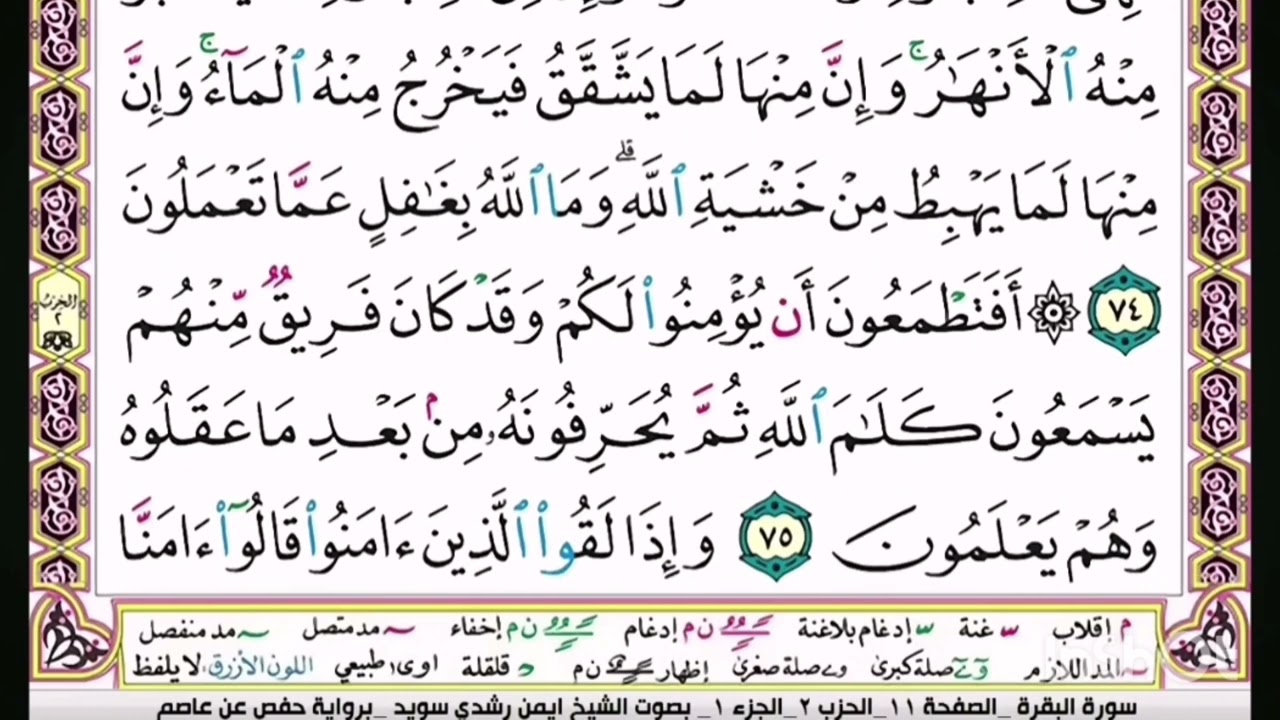 مِنْهُ ٱلْأَنْهَٰرُ ۚ وَإِنَّ مِنْهَا لَمَا يَشَّقَّقُ فَيَخْرُجُ مِنْهُ ٱلْمَآءُ ۚ وَإِنَّ
مِنْهَا لَمَا يَهْبِطُ مِنْ خَشْيَةِ ٱللَّهِ ۗ وَمَا ٱللَّهُ بِغَٰفِلٍ عَمَّا تَعْمَلُونَ
الحزب ٢
٧٤ ۞ أَفَتَطْمَعُونَ أَن يُؤْمِنُوا۟ لَكُمْ وَقَدْ كَانَ فَرِيقٌ مِّنْهُمْ
يَسْمَعُونَ كَلَٰمَ ٱللَّهِ ثُمَّ يُحَرِّفُونَهُۥ مِنۢ بَعْدِ مَا عَقَلُوهُ
وَهُمْ يَعْلَمُونَ ٧٥ وَإِذَا لَقُوا۟ ٱلَّذِينَ ءَامَنُوا۟ قَالُوٓا۟ ءَامَنَّا
م إقلاب غنة إدغام بلاغنة ن م إدغام ن م إخفاء مد متصل مد منفصل
المد اللازم صلة كبرى صلة صغرى إظهار ن م قلقلة اوى طبيعي اللون الأزرق لا يلفظ
سورة البقرة _الصفحة ١١_الحزب ٢_الجزء ١_ بصوت الشيخ ايمن رشدي سويد _برواية حفص عن عاصم